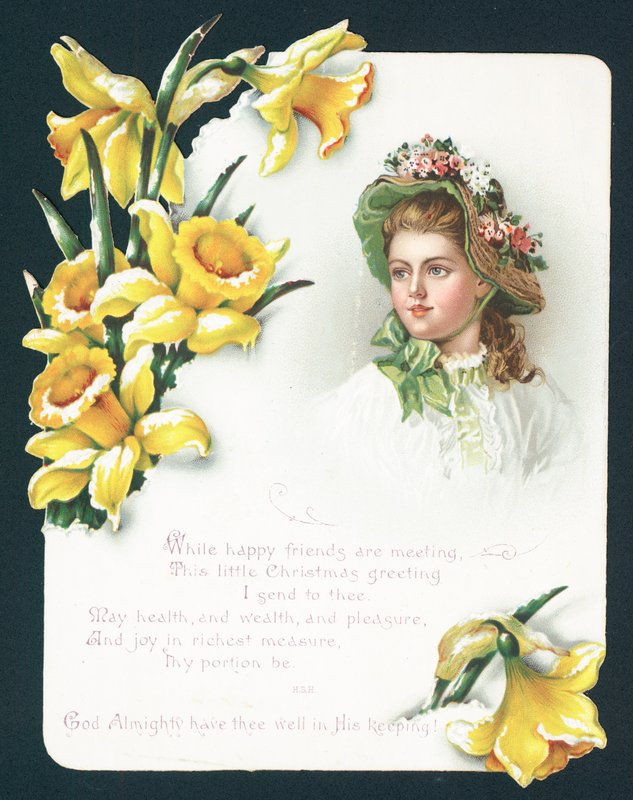 While happy friends are meeting,
This little Christmas greeting
I send to thee.
May health, and wealth, and pleasure,
And joy in richest measure,
Thy portion be.
H.S.H.
God Almighty have thee well in His keeping!